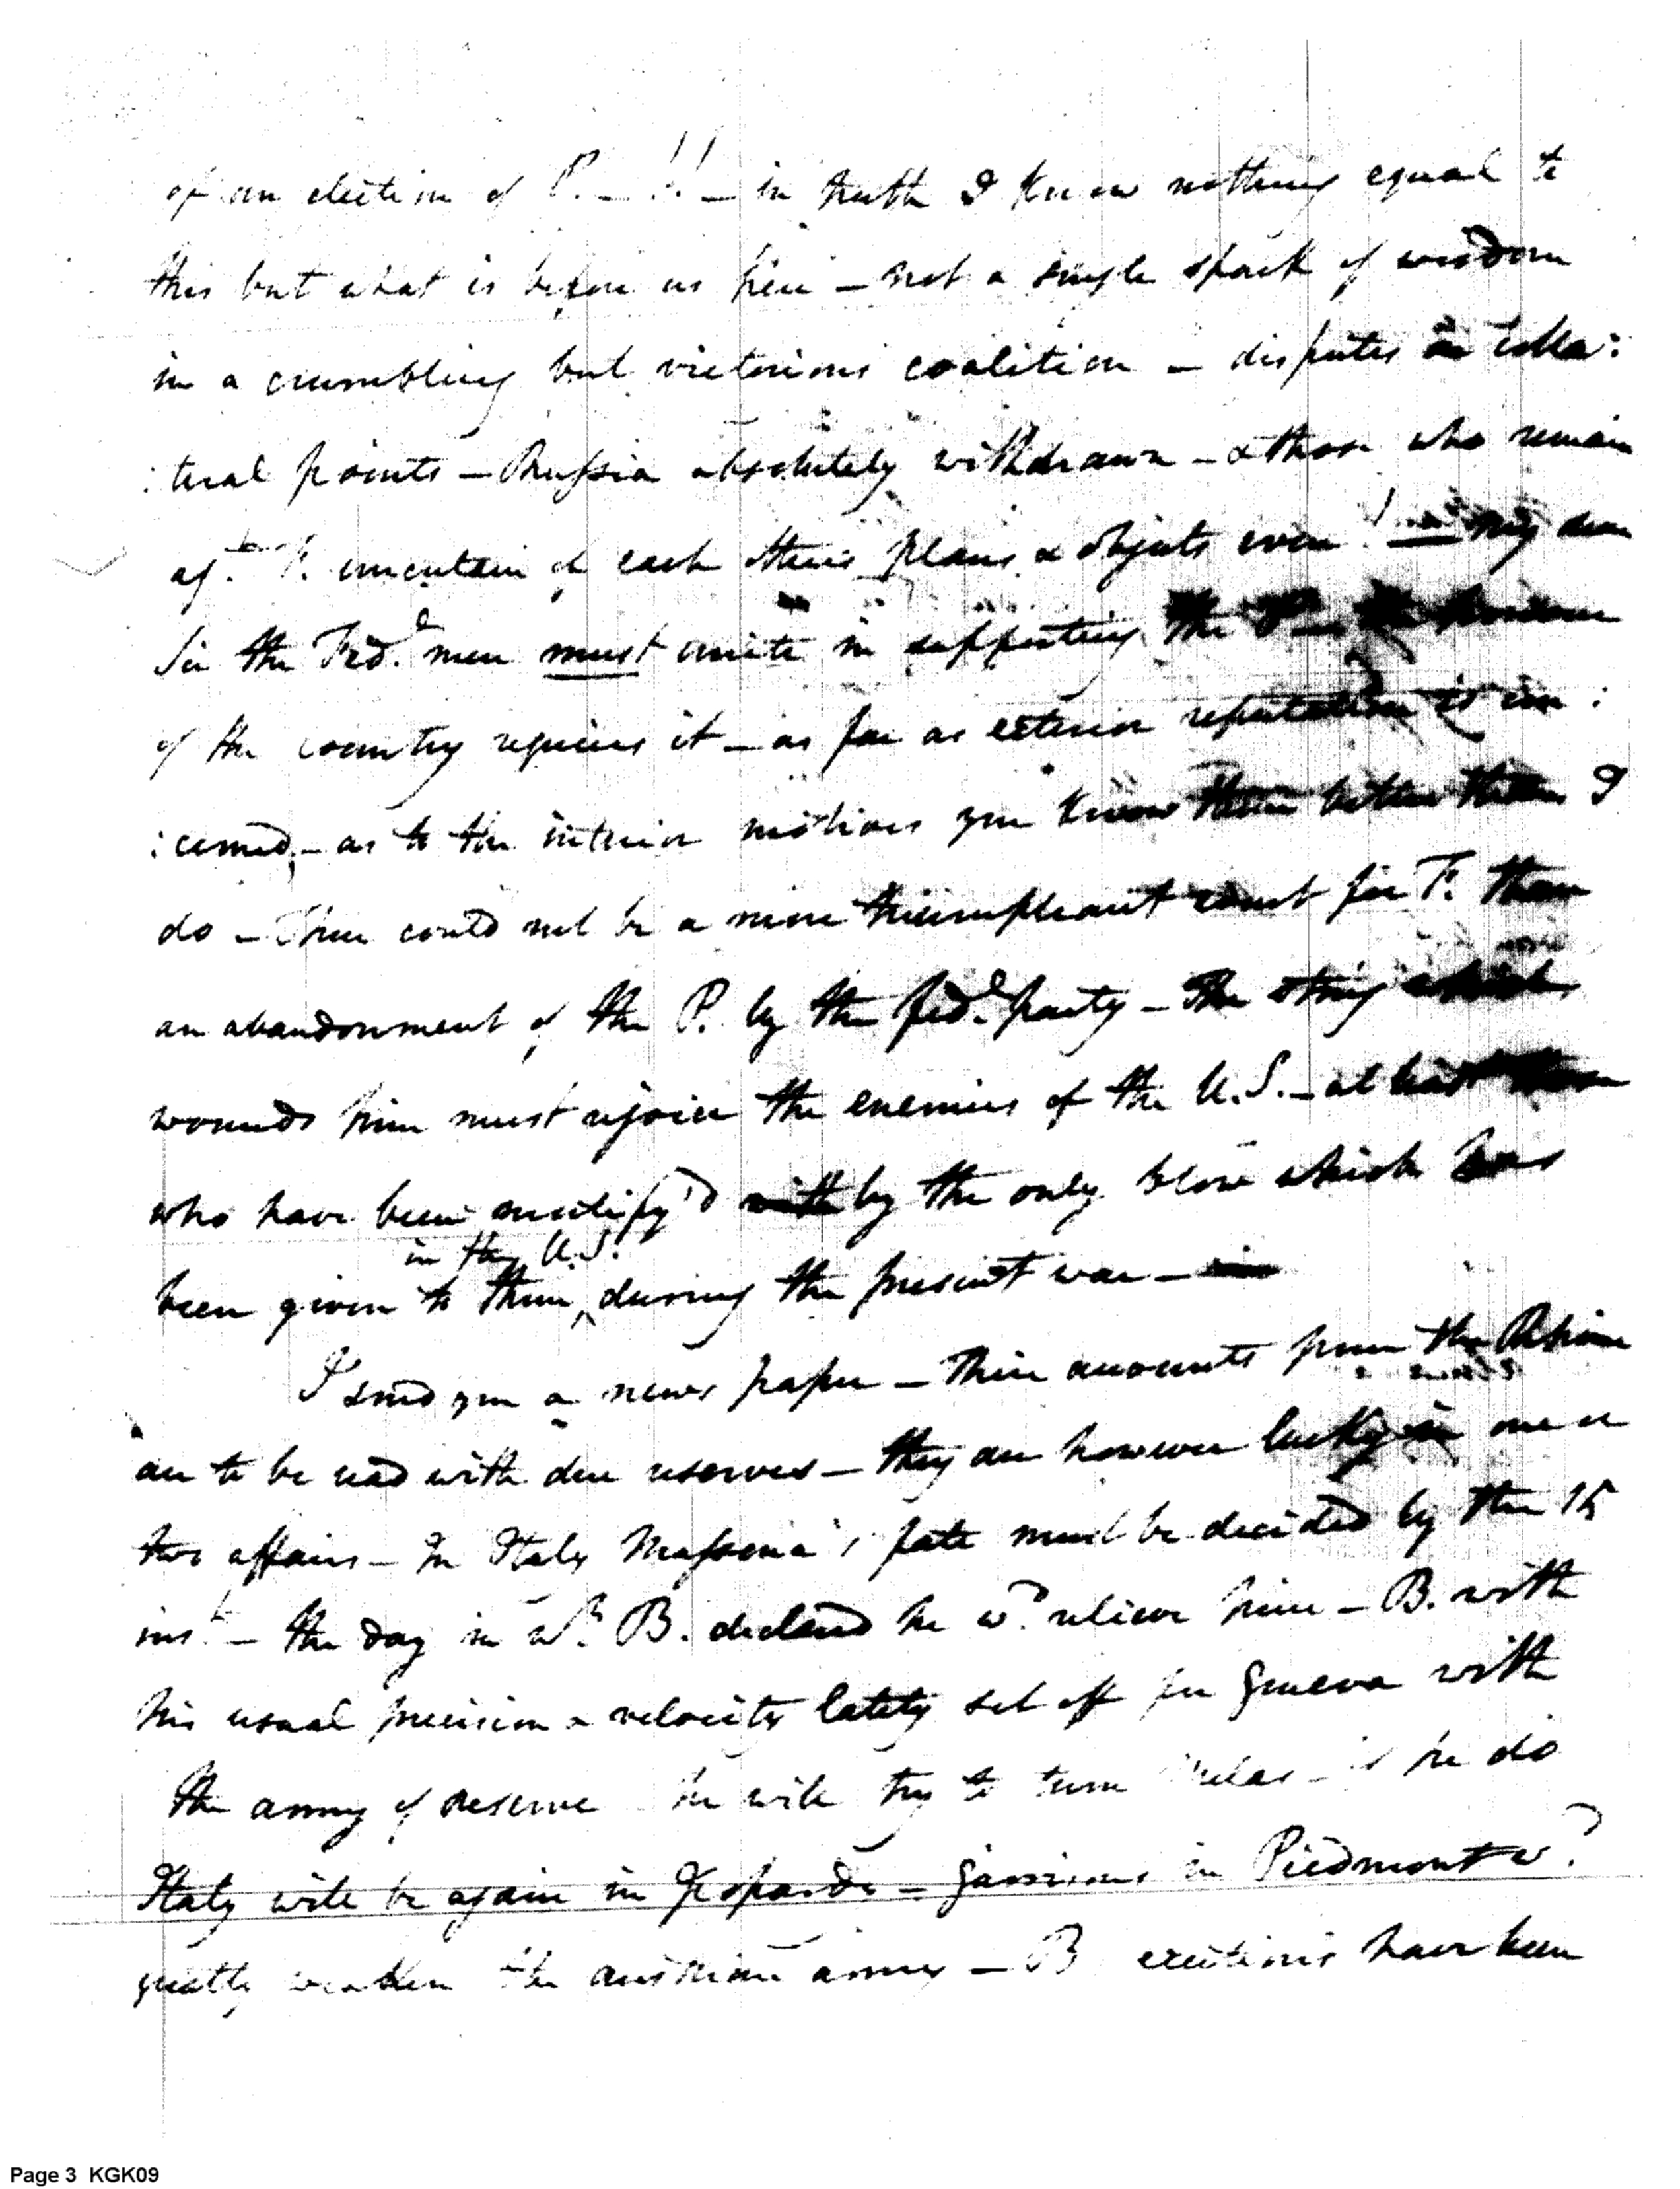 of an election of P. — !! — in truth I know nothing equal to
this but what is before us here — not a single spark of wisdom
in a crumbling but victorious coalition — disputes on colla:
:teral points — Russia absolutely withdrawn — & those who remain
agt. F. uncertain of each others plans & objects even! — my dear
Sir the Fedl. men must unite in supporting the P —
of the country requires it — as far as exterior reputation is con:
:cerned, — as to the interior motives you know them better than I
do — There could not be a more triumphant event for F. than
an abandonment of the P. by the fedl. party — The sting which
wounds him must rejoice the enemies of the U.S. — at least those
who have been mortify'd with by the only blow which has
in the U.S.
been given to them, during the present war —
I send you a news paper — their accounts from the Rhine
are to be read with due reserves — they are however lucky in one or
two affairs — In Italy Massena's fate must be decided by the 15
inst. — the day in wh. B. declared he wd. relieve him — B. with
his usual precision & velocity lately set off for Geneva with
the army of reserve he will try to turn Melas — if he do
Italy will be again in Jeopardy — Garrisons in Piedmont wd.
greatly weaken the austrian army — B exertions have been
Page 3 KGK09